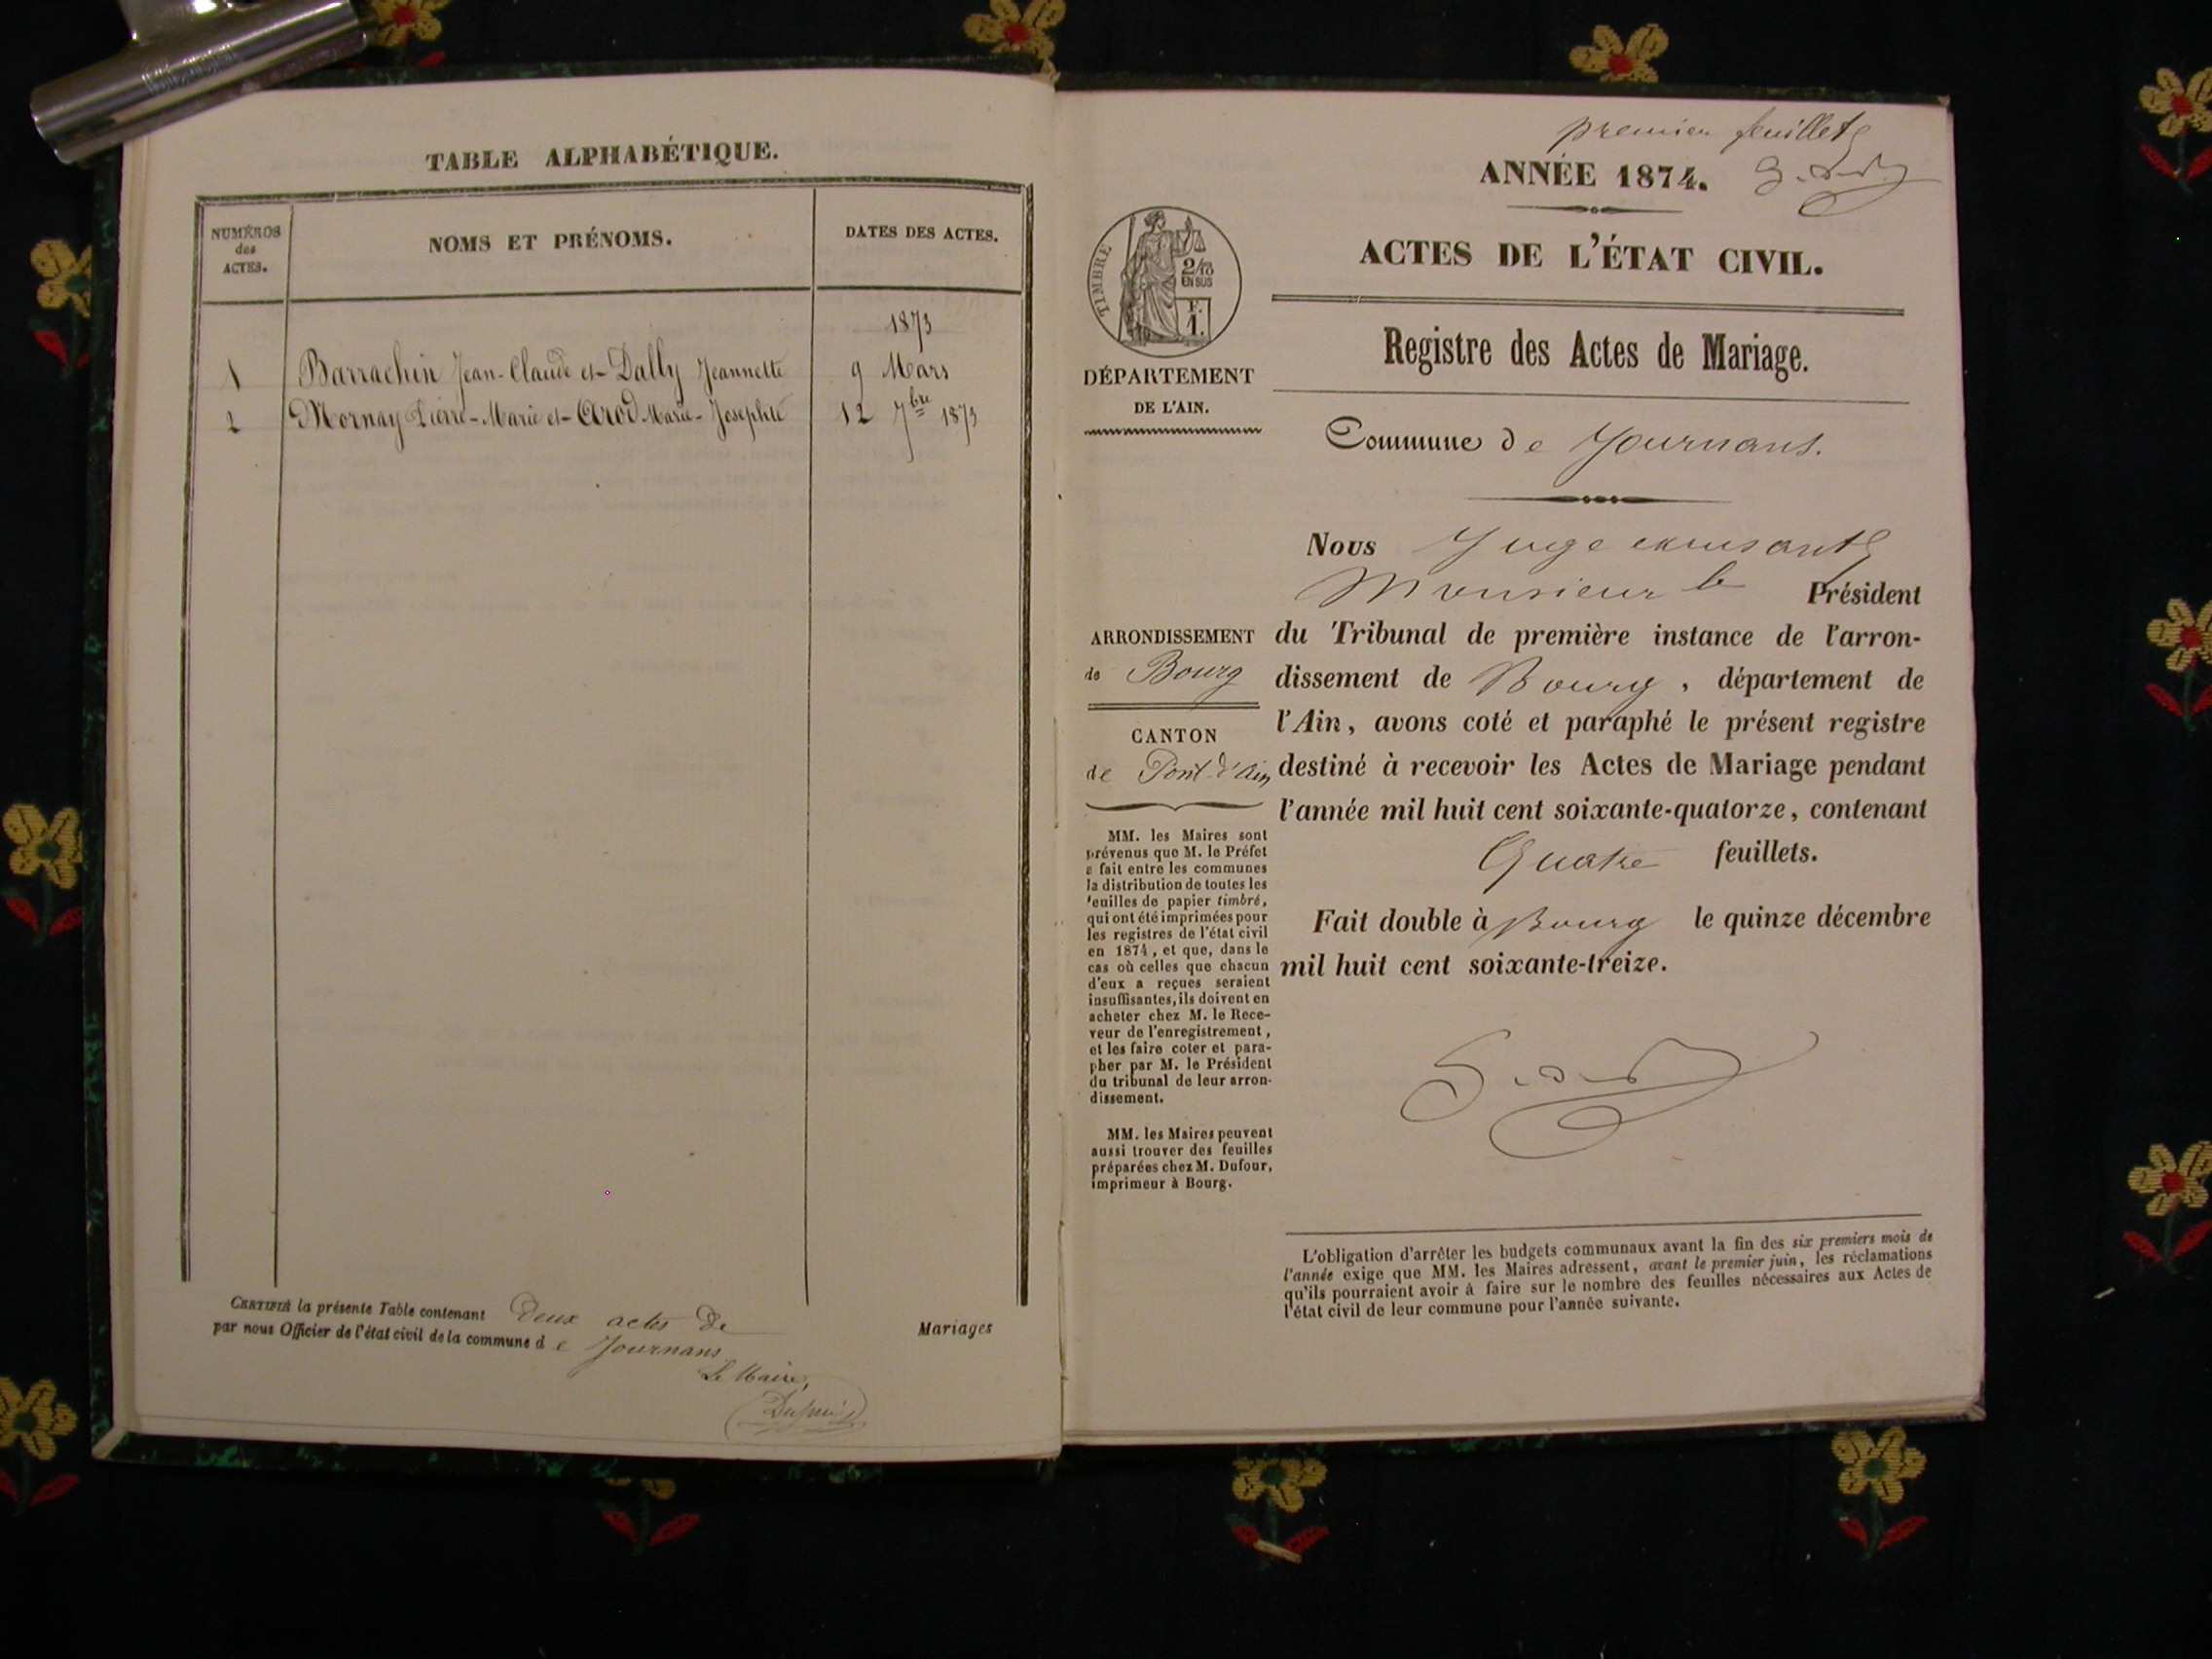 TABLE ALPHABÉTIQUE.
NUMÉROS
des
ACTES.
NOMS ET PRÉNOMS.
DATES DES ACTES.
1873
1 Barrachin Jean-Claude et Dally Jeannette 9 Mars
2 Mornay Pierre-Marie et Arod Marie-Josephte 12 7bre 1873
CERTIFIÉ la présente Table contenant Deux actes de Mariages
par nous Officier de l'état civil de la commune de Journans
Le Maire,
premier feuillet
ANNÉE 1874.
ACTES DE L'ÉTAT CIVIL.
TIMBRE
2/10
EN SUS
F.
1.
DÉPARTEMENT
DE L'AIN.
Registre des Actes de Mariage.
Commune de Journans.
Nous Juge
Monsieur le Président
du Tribunal de première instance de l'arron-
dissement de Bourg, département de
l'Ain, avons coté et paraphé le présent registre
destiné à recevoir les Actes de Mariage pendant
l'année mil huit cent soixante-quatorze, contenant
Quatre feuillets.
Fait double à Bourg le quinze décembre
mil huit cent soixante-treize.
ARRONDISSEMENT
de Bourg
CANTON
de Pont-d'Ain
MM. les Maires sont
prévenus que M. le Préfet
a fait entre les communes
la distribution de toutes les
feuilles de papier timbré,
qui ont été imprimées pour
les registres de l'état civil
en 1874, et que, dans le
cas où celles que chacun
d'eux a reçues seraient
insuffisantes, ils doivent en
acheter chez M. le Rece-
veur de l'enregistrement,
et les faire coter et para-
pher par M. le Président
du tribunal de leur arron-
dissement.
MM. les Maires peuvent
aussi trouver des feuilles
préparées chez M. Dufour,
imprimeur à Bourg.
L'obligation d'arrêter les budgets communaux avant la fin des six premiers mois de
l'année exige que MM. les Maires adressent, avant le premier juin, les réclamations
qu'ils pourraient avoir à faire sur le nombre des feuilles nécessaires aux Actes de
l'état civil de leur commune pour l'année suivante.